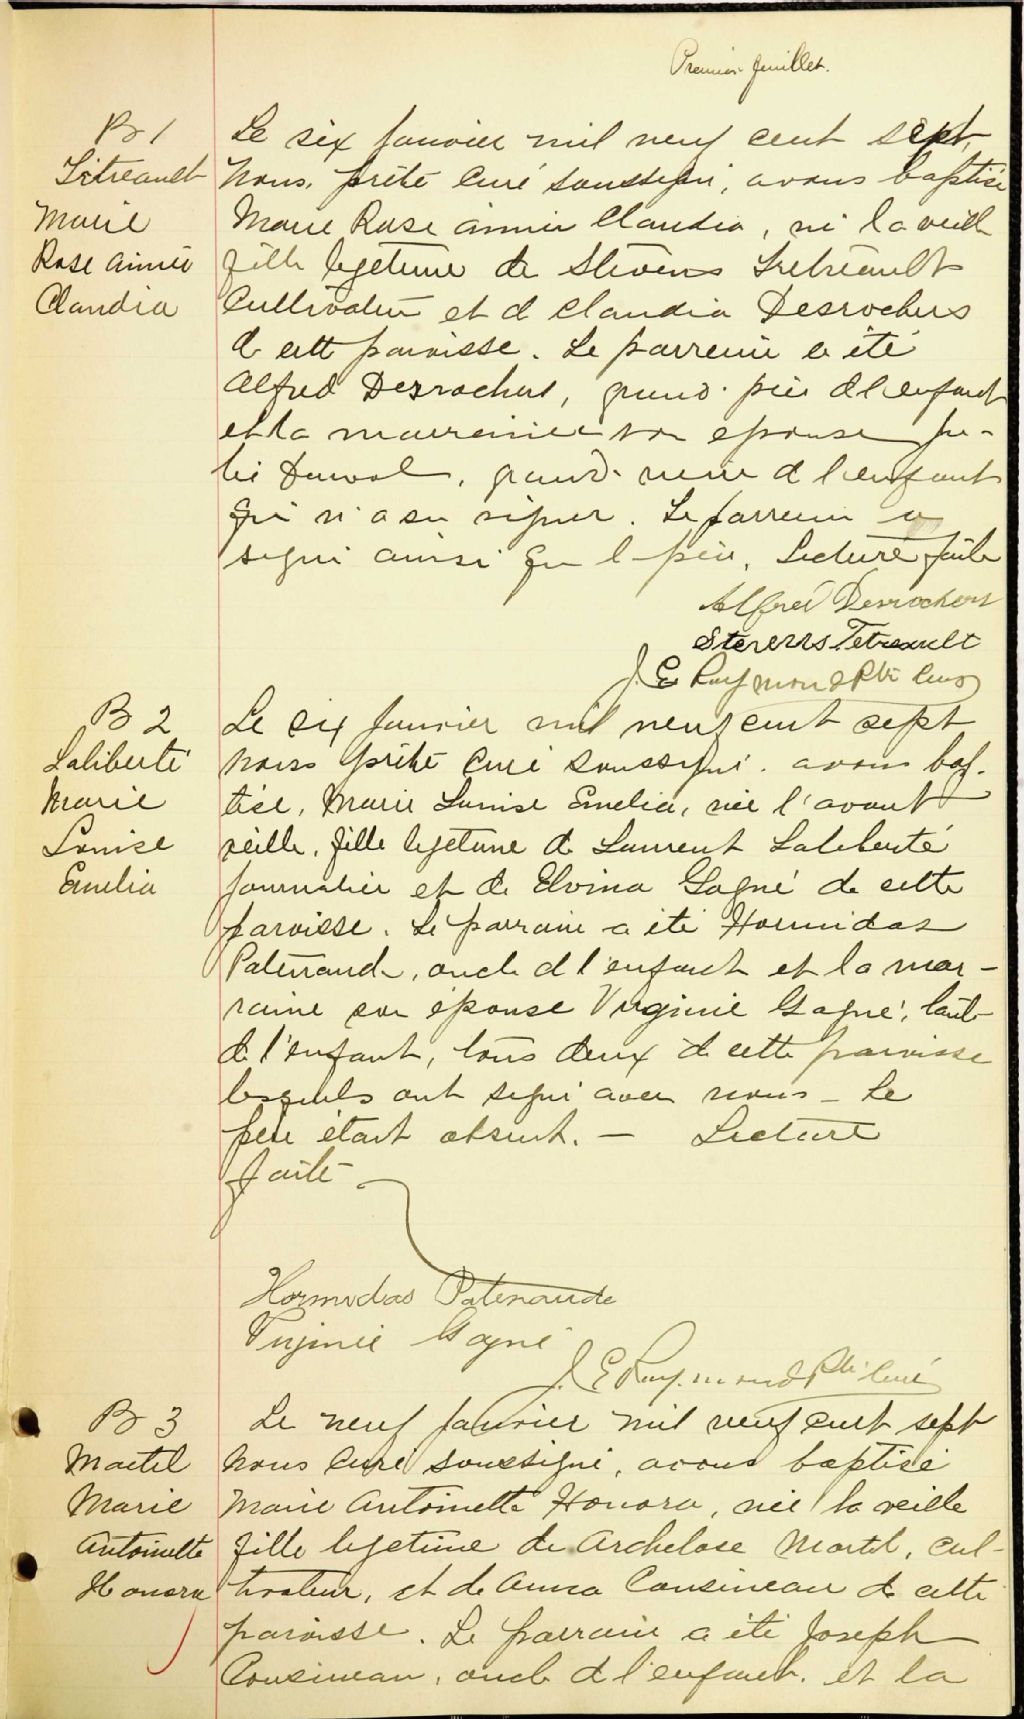 Premier feuillet.
B 1
Tétreault
Marie
Rose Aimée
Claudia
Le six janvier mil neuf cent sept,
nous, prêtre curé soussigné, avons baptisé
Marie Rose Aimée Claudia, née la veille
fille légitime de Stevens Tétreault
cultivateur et de Claudia Desrochers
de cette paroisse. Le parrain a été
Alfred Desrochers, grand-père de l'enfant
et la marraine son épouse Ju-
lie Duval, grand-mère de l'enfant
qui n'a su signer. Le parrain a
signé ainsi que le père. Lecture faite
Alfred Desrochers
Stevens Tetreault
J. E. Raymond Ptre Curé
B 2
Laliberté
Marie
Louise
Emelia
Le six janvier mil neuf cent sept
nous prêtre curé soussigné avons bap-
tisé, Marie Louise Emelia, née l'avant
veille, fille légitime de Laurent Laliberté
journalier et de Elvina Gagné de cette
paroisse. Le parrain a été Hormidas
Patenaude, oncle de l'enfant et la mar-
raine son épouse Virginie Gagné, tante
de l'enfant, tous deux de cette paroisse
lesquels ont signé avec nous - Le
père étant absent. - Lecture
faite
Hormidas Patenaude
Virginie Gagné
J. E. Raymond Ptre Curé
B 3
Martel
Marie
Antoinette
Honora
Le neuf janvier mil neuf cent sept
nous curé soussigné, avons baptisé
Marie Antoinette Honora, née la veille
fille légitime de Archelase Martel, cul-
tivateur, et de Anna Cousineau de cette
paroisse. Le parrain a été Joseph
Cousineau, oncle de l'enfant, et la